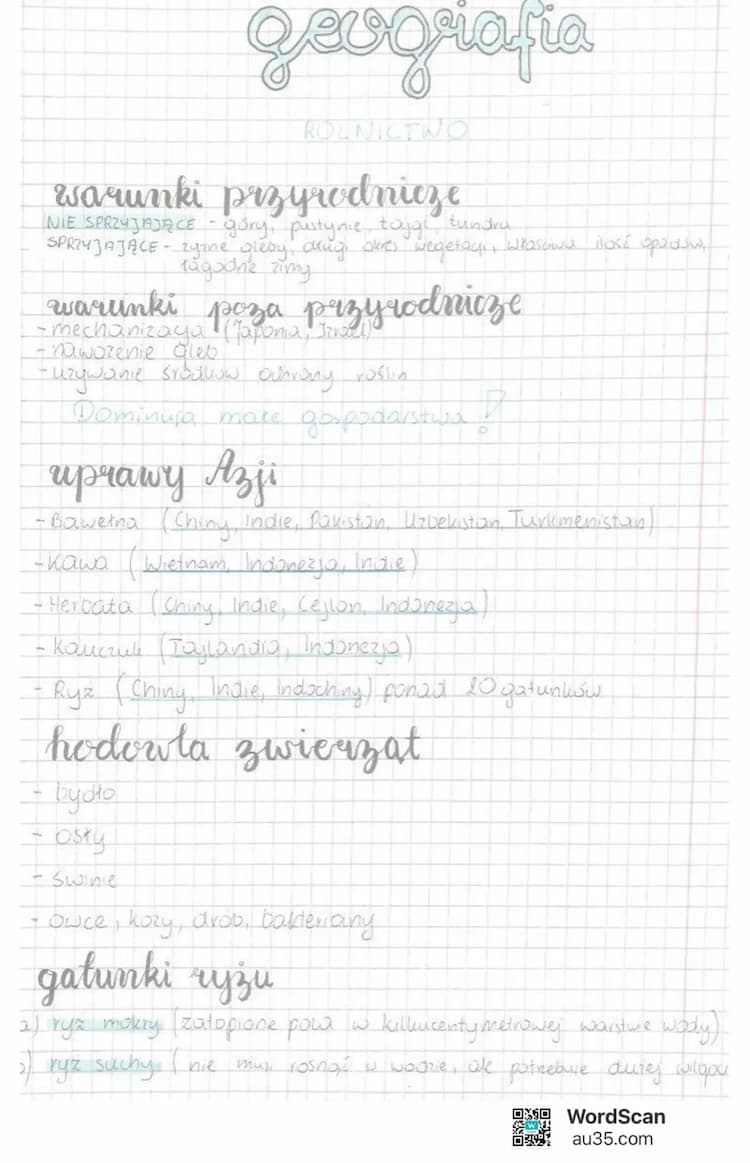 geografia
ROLNICTWO
warunki przyrodnicze
NIE SPRZYJAJĄCE - góry, pustynie, tajgi tundra
SPRZYJAJĄCE - żyzne gleby, długi okres wegetacji, właściwa ilość opadów,
łagodne zimy
warunki poza przyrodnicze
- mechanizacja (Japonia, Izrael)
- nawożenie gleb
- używanie środków ochrony roślin
Dominują małe gospodarstwa!
uprawy Azji
- Bawełna (Chiny, Indie, Pakistan, Uzbekistan, Turkmenistan)
- Kawa (Wietnam, Indonezja, Indie)
- Herbata (Chiny, Indie, Cejlon, Indonezja)
- Kauczuk (Tajlandia, Indonezja)
- Ryż (Chiny, Indie, Indochiny) ponad 20 gatunków
hodowla zwierząt
- bydło
- osły
- świnie
- owce, kozy, drób, bakteriany
gatunki ryżu
a) ryż mokry (zatopione pola w kilkucentymetrowej warstwie wody)
b) ryż suchy (nie musi rosnąć w wodzie, ale potrzebuje dużej wilgo
WordScan
au35.com